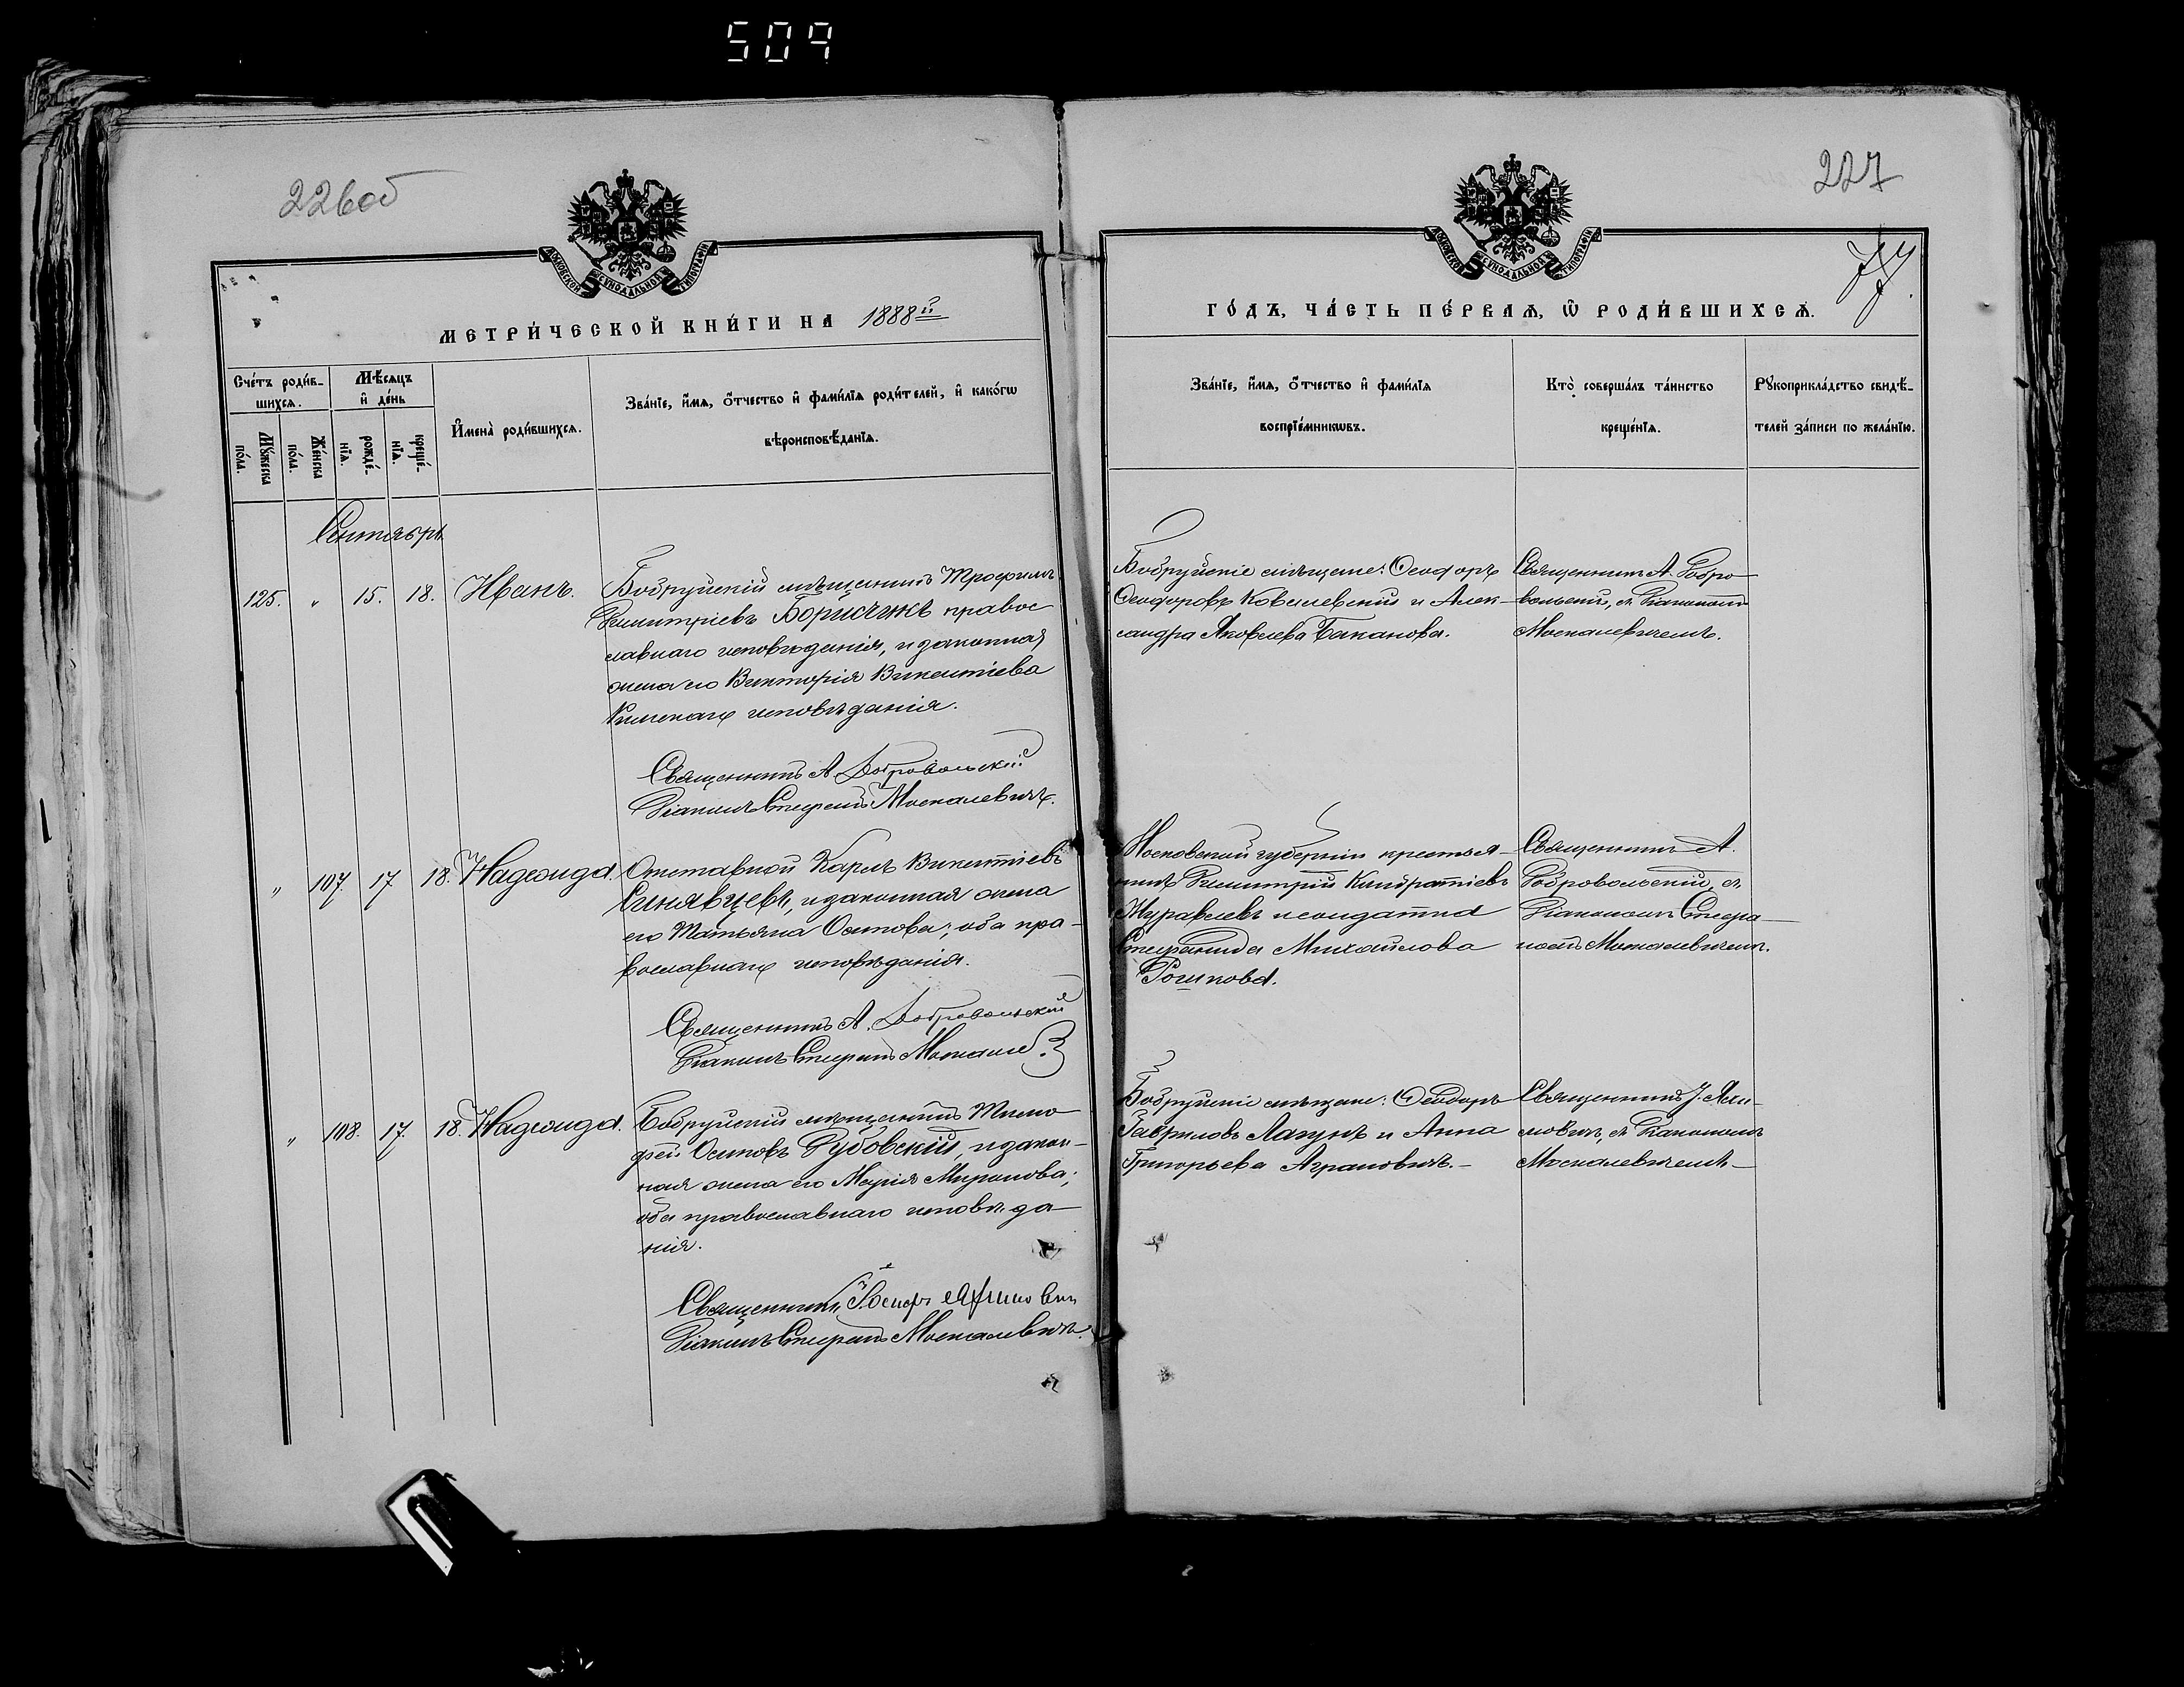 509
226об
227
МОСКОВСКОЙ СѴНОДАЛЬНОЙ ТИПОГРАФІИ
МОСКОВСКОЙ СѴНОДАЛЬНОЙ ТИПОГРАФІИ
МЕТРИ́ЧЕСКОЙ КНИ́ГИ НА 1888й
ГО́ДЪ, ЧА́СТЬ ПЕ́РВАѦ, Ѡ҆ РОДИ́ВШИХСѦ.
Сче́тъ роди́в-
шихсѧ.
Мѣ́сѧцъ
и҆ де́нь
Мꙋ́жеска
по́ла.
Же́нска
по́ла.
рожде́-
нїѧ.
креще́-
нїѧ.
И҆мена̀ роди́вшихсѧ.
Зва́нїе, и҆́мѧ, ѻ҆́тчество и҆ фами́лїѧ роди́телей, и҆ како́гѡ
вѣроисповѣ́данїѧ.
Зва́нїе, и҆́мѧ, ѻ҆́тчество и҆ фами́лїѧ
воспрїе́мникѡвъ.
Кто̀ соверша́лъ та́инство
креще́нїѧ.
Рꙋкоприкла́дство свидѣ́-
телей за́писи по жела́нїю.
Сентябрь
125. " 15. 18. Иванъ.
Бобруйскій мѣщанинъ Трофимъ
Димитріевъ Борисчикъ правос
лавнаго исповѣданія, и законная
жена его Викторія Викентіева
Римскаго исповѣданія.
Священникъ А Добровольскій
Діаконъ Стефанъ Москалевичъ.
Бобруйскіе мѣщане: Ѳеодоръ
Ѳеодоровъ Ковалевскій и Алек-
сандра Яковлева Баканова.
Священникъ А. Добро-
вольскій, съ Діакономъ
Москалевичемъ.
" 107. 17 18. Надежда.
Отставной Карлъ Викентіевъ
Синявцевъ, и законная жена
его Татьяна Осипова; оба пра-
вославнаго исповѣданія.
Священникъ А. Добровольскій
Діаконъ Стефанъ Москалев
Московской губерніи крестья-
нинъ Димитрій Киндратіевъ
Журавлевъ и солдатка
Стефанида Михайлова
Рошкова.
Священникъ А.
Добровольскій, съ
Діакономъ Стефа-
номъ Москалевичемъ.
" 108. 17. 18. Надежда.
Бобруйскій мѣщанинъ Тимо
фей Осиповъ Дубовскій, и закон-
ная жена его Марія Миронова;
оба православнаго исповѣда-
нія.
Священникъ Іосифъ
Діаконъ Стефанъ Москалевичъ.
Бобруйскіе мѣщане: Ѳеодоръ
Гавриловъ Лагунъ и Анна
Григорьева Аграновичъ.-
Священникъ І. Яки-
мовичъ, съ Діакономъ
Москалевичемъ-